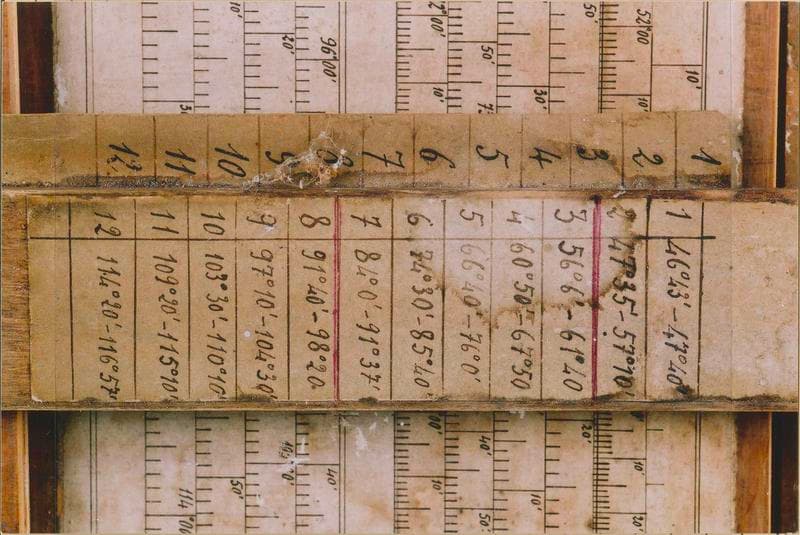 1 2 3 4 5 6 7 8 9 10 11 12
1 46°43'-47°40'
2 47°35'-57°10'
3 56°6'-61°40
4 60°50'-67°50
5 66°40'-76°0'
6 74°30'-85°40'
7 84°0'-91°37'
8 91°40'-98°20
9 97°10'-104°30'
10 103°30'-110°10'
11 109°20'-115°10'
12 114°20'-116°57'
52°00'
10'
50'
10'
30'
50'
10'
96°00'
20'
10'
20'
10'
20'
10'
40'
50'
10'
40'
50'
114°